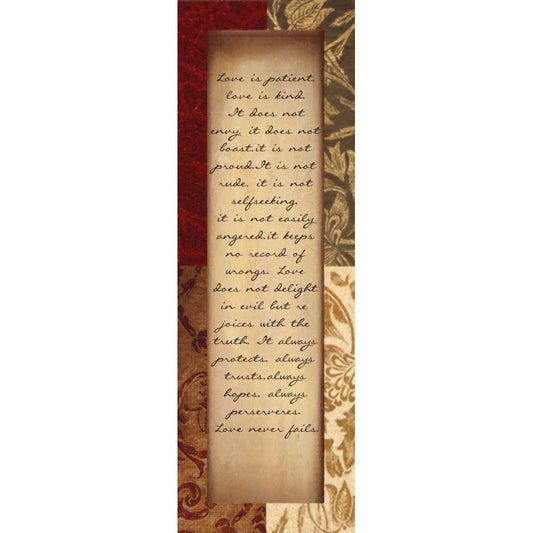 Love is patient,
love is kind.
It does not
envy, it does not
boast,it is not
proud.It is not
rude, it is not
selfseeking,
it is not easily
angered,it keeps
no record of
wrongs. Love
does not delight
in evil but re
joices with the
truth. It always
protects, always
trusts,always
hopes, always
perserveres.
Love never fails.